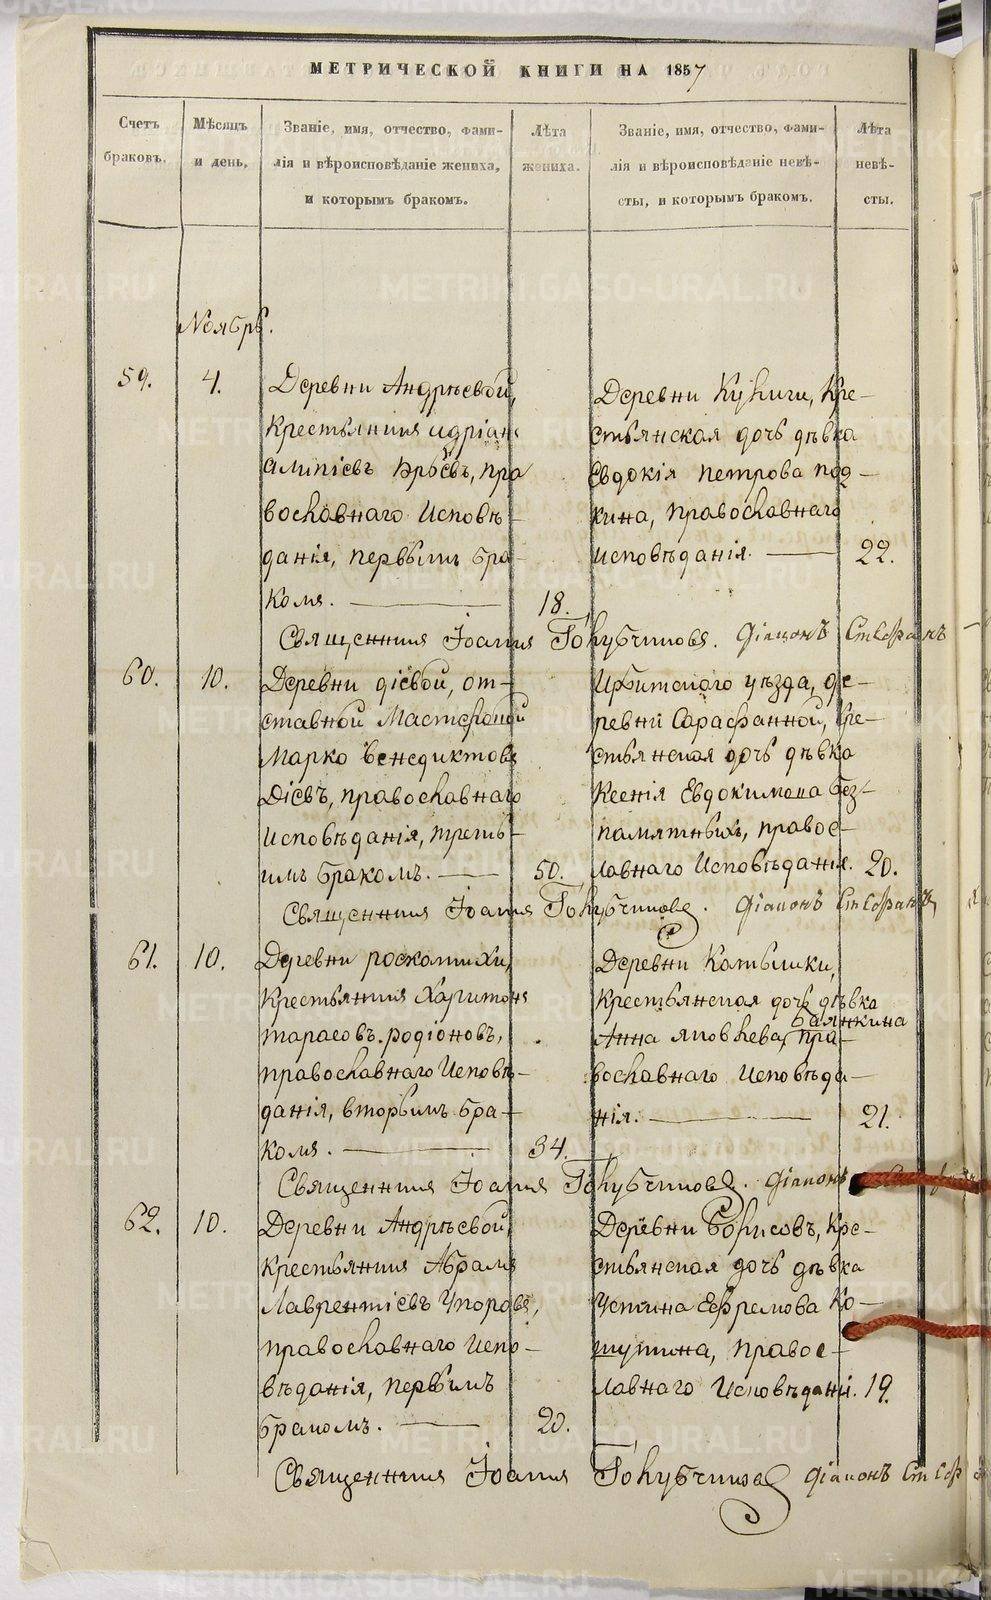 МЕТРИЧЕСКОЙ КНИГИ НА 1857
Счетъ браковъ.
Мѣсяцъ и день.
Званіе, имя, отчество, фами-
лія и вѣроисповѣданіе жениха,
и которымъ бракомъ.
Лѣта жениха.
Званіе, имя, отчество, фами-
лія и вѣроисповѣданіе невѣ-
сты, и которымъ бракомъ.
Лѣта невѣ-
сты.
Ноябрь.
59. 4.
Деревни Андрѣевой,
Крестьянинъ
Алипіевъ пра
вославнаго Исповѣ-
данія, первымъ бра-
комъ. 18.
Деревни Куликги, Кре-
стьянская дочь дѣвка
Евдокія Петрова Под-
кина, православнаго
исповѣданія. 22.
Священникъ Іоаннъ Голубчиковъ. Діаконъ
60. 10.
Деревни Діевой, от-
ставной Мастеровой
Марко Венедиктовъ
Діевъ, православнаго
Исповѣданія, треть-
имъ бракомъ. 50.
Ирбитскаго уѣзда, де-
ревни Сарафанной, Кре-
стьянская дочь дѣвка
Ксенія Евдокимова Без-
памятныхъ, правос-
лавнаго Исповѣданія. 20.
Священникъ Іоаннъ Голубчиковъ. Діаконъ
61. 10.
Деревни Роскатихи,
Крестьянинъ Харитонъ
Тарасовъ Родіоновъ,
православнаго Исповѣ-
данія, вторымъ бра-
комъ. 34.
Деревни Катышки,
Крестьянская дочь дѣвка
Баянкина
Анна Яковлева, пра-
вославнаго Исповѣда-
нія. 21.
Священникъ Іоаннъ Голубчиковъ. Діаконъ
62. 10.
Деревни Андрѣевой,
Крестьянинъ Абрамъ
Лаврентіевъ Упоровъ,
православнаго Испо-
вѣданія, первымъ
бракомъ. 20.
Деревни Борисовъ, Кре-
стьянская дочь дѣвка
Устина Ефремова Ко-
шутина, правос-
лавнаго Исповѣданія. 19.
Священникъ Іоаннъ Голубчиковъ Діаконъ
METRIKI.GASO-URAL.RU